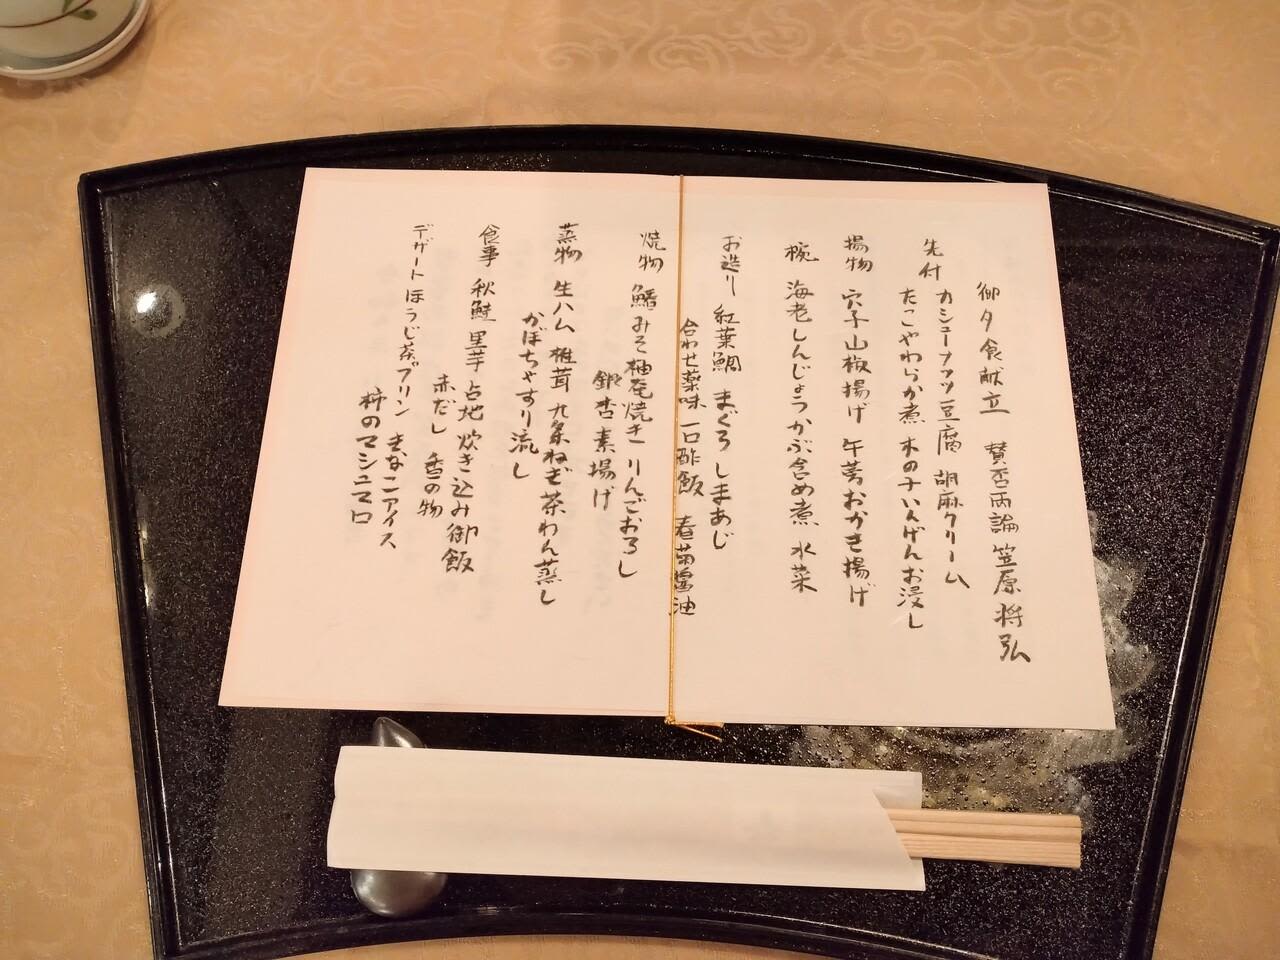 御夕食献立 賛否両論 笠原将弘
先付 カシューナッツ豆腐 胡麻クリーム
たこやわらか煮 木の子いんげんお浸し
揚物 穴子山椒揚げ 牛蒡おかき揚げ
椀 海老しんじょうかぶ含め煮 水菜
お造り 紅葉鯛 まぐろ しまあじ
合わせ薬味 一口酢飯 春菊醤油
焼物 鰆みそ柚庵焼き りんごおろし
銀杏素揚げ
蒸物 生ハム 椎茸 九条ねぎ茶わん蒸し
かぼちゃすり流し
食事 秋鮭 里芋 占地 炊き込み御飯
赤だし 香の物
デザート ほうじ茶プリン きなこアイス
柿のマシュマロ